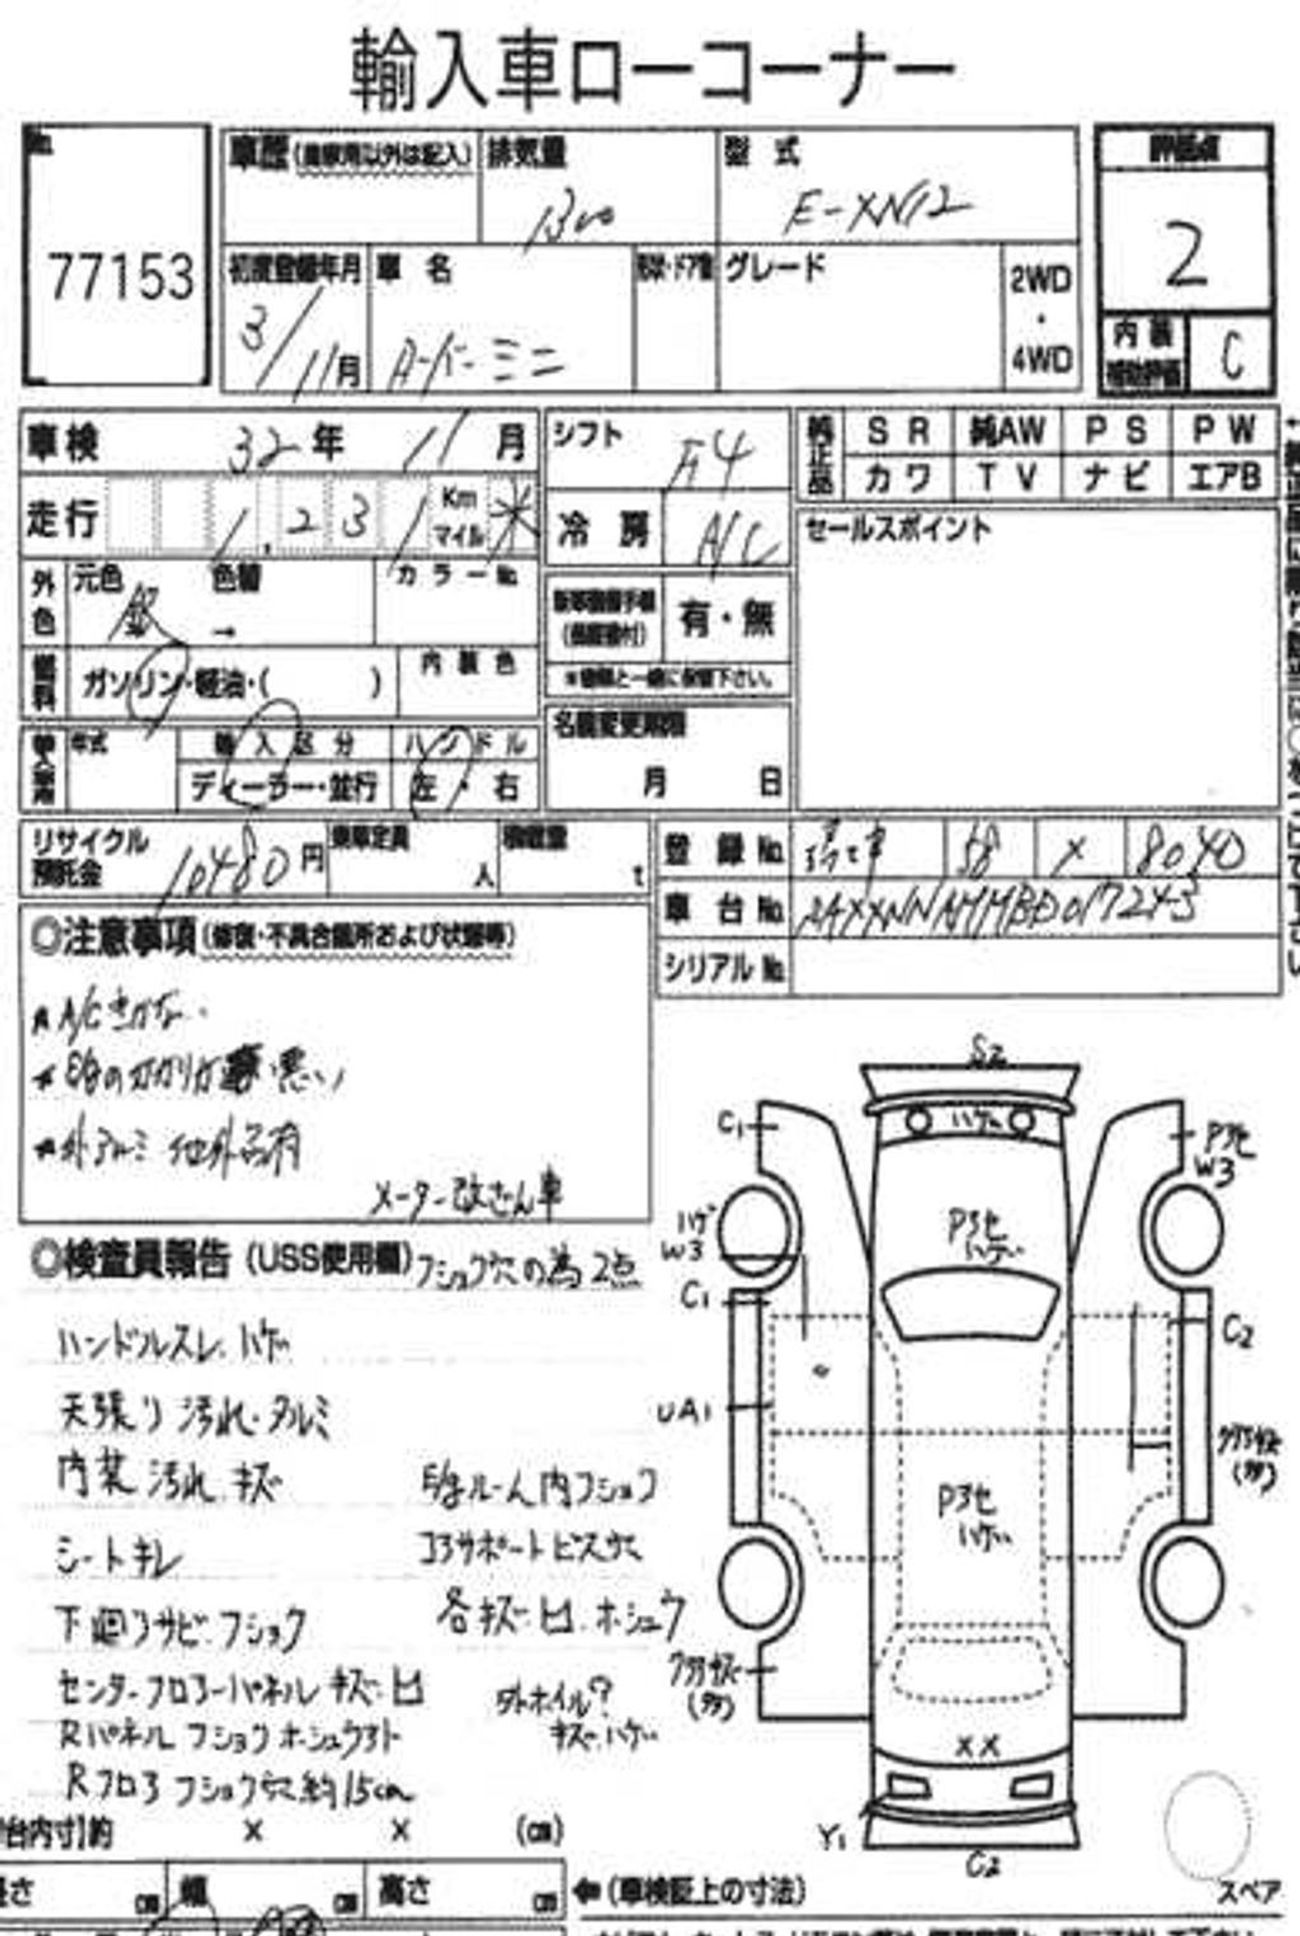 輸入車ローコーナー
No.
77153
車歴(自家用以外は記入)
排気量
1300
型 式
E-XN12
評価点
2
初度登録年月
3/11月
車 名
ローバーミニ
形状・ドア数
グレード
2WD
・
4WD
内 装
補助評価
C
車検 32年 11月
シフト
F4
純正品
SR 純AW PS PW
カワ TV ナビ エアB
走行 1,231 Km マイル ＊
冷 房
A/C
セールスポイント
外色
元色 色替
銀 →
カラーNo.
新車整備手帳
(保証書付)
有・無
＊書類と一緒に保管下さい。
燃料
ガソリン・軽油・( )
内 装 色
輸入車用
年式
輸 入 区 分
ハ ン ド ル
ディーラー・並行
左・右
名義変更期限
月 日
リサイクル
預託金
10480円
乗車定員
人
積載量
t
登 録 No.
58 × 8040
車 台 No.
シリアル No.
◎注意事項(修復・不具合箇所および状態等)
＊A/Cきかない
＊ E/gのカカリが悪い
＊外アルミ 他外品有
メーター改ざん車
◎検査員報告(USS使用欄)フショク穴の為2点
ハンドルスレ、ハゲ
天張り 汚れ・タルミ
内装 汚れ、キズ
シートキレ
下廻りサビ・フショク
センターフロアーパネル キズ・凹
Rパネル フショクホシュウアト
Rフロア フショク穴約15cm
E/gルーム内フショク
コアサポートビスサビ
各キズ・凹、ホシュウ
外ホイル?
キズ・ハゲ
S2
ハゲ
C1
P3セ
W3
P3セ
ハゲ
ハゲ
W3
C1
C2
UA1
P3セ
ハゲ
XX
Y1
C2
台内寸]約 × × (cm)
長さ cm 幅 cm 高さ cm
←(車検証上の寸法)
スペア